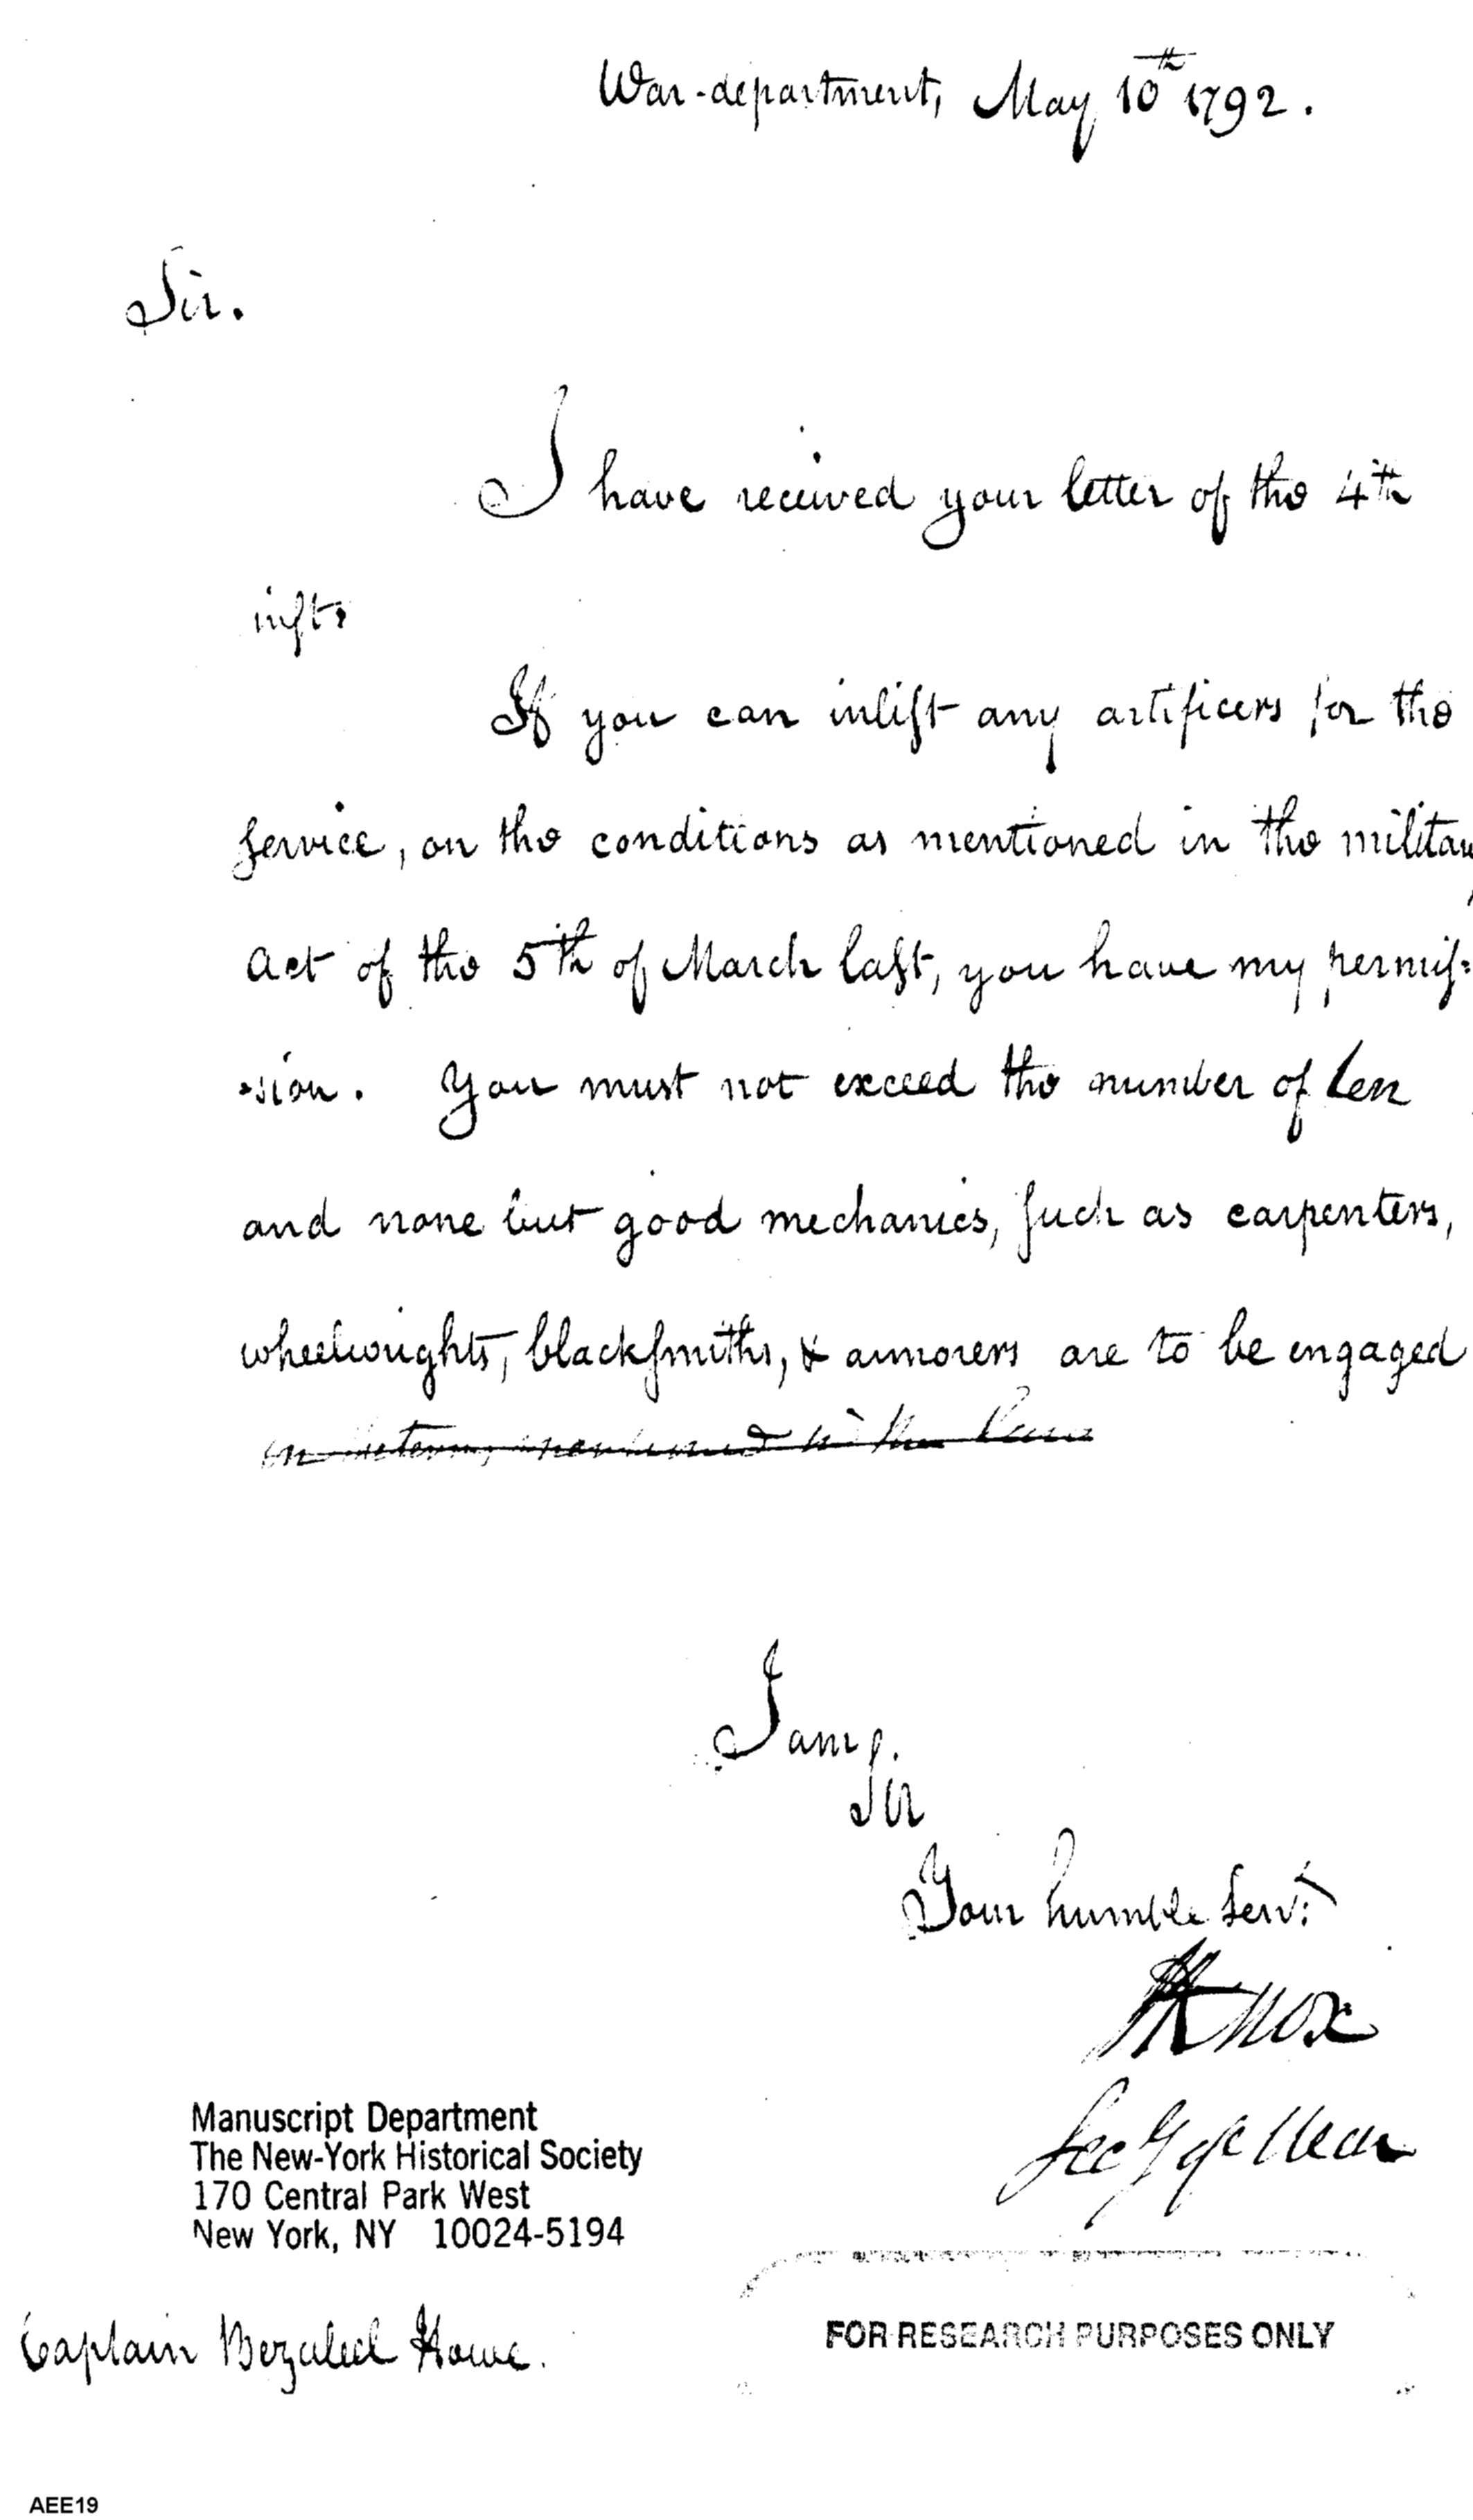 War-department, May 10th 1792.
Sir.
I have received your letter of the 4th
inſt.
If you can inliſt any artificers for the
ſervice, on the conditions as mentioned in the military
act of the 5th of March laſt, you have my permiſ=
=sion. You must not exceed the number of ten
and none but good mechanics, ſuch as carpenters,
wheelwrights, blackſmiths, & armorers are to be engaged
I am,
Sir
Your humble Servt
HKnox
Secy of War
Manuscript Department
The New-York Historical Society
170 Central Park West
New York, NY 10024-5194
FOR RESEARCH PURPOSES ONLY
Captain Bezaleel Howe.
AEE19